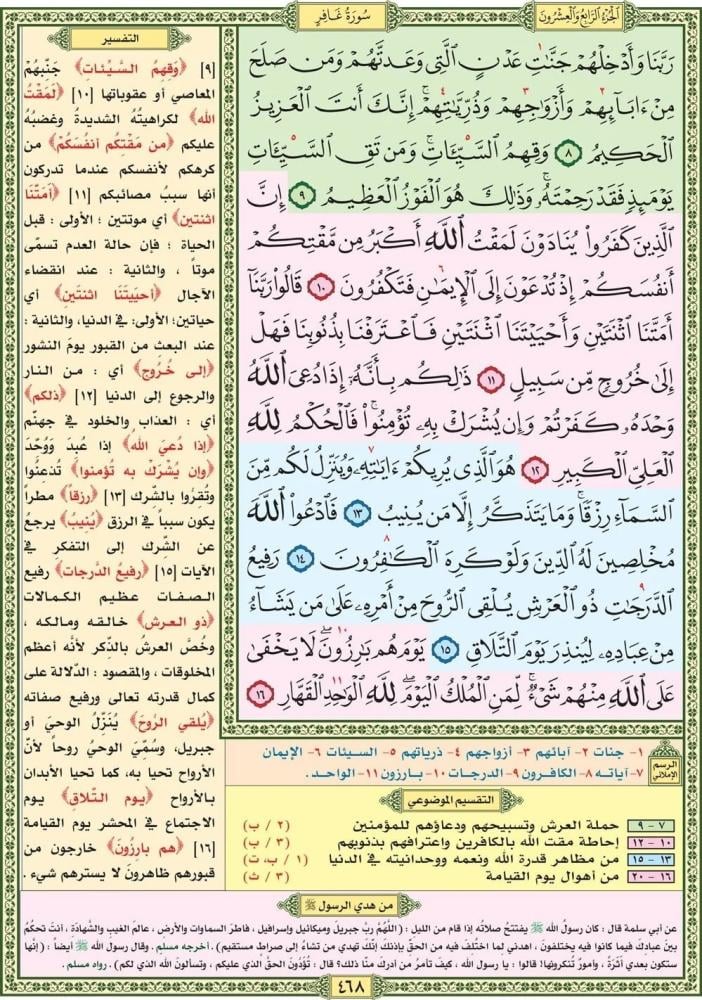 الجزء الرابع والعشرون
سورة غافر
رَبَّنَا وَأَدْخِلْهُمْ جَنَّٰتِ عَدْنٍ ٱلَّتِى وَعَدتَّهُمْ وَمَن صَلَحَ
مِنْ ءَابَآئِهِمْ وَأَزْوَٰجِهِمْ وَذُرِّيَّٰتِهِمْ ۚ إِنَّكَ أَنتَ ٱلْعَزِيزُ
ٱلْحَكِيمُ ٨ وَقِهِمُ ٱلسَّيِّـَٔاتِ ۚ وَمَن تَقِ ٱلسَّيِّـَٔاتِ
يَوْمَئِذٍ فَقَدْ رَحِمْتَهُۥ ۚ وَذَٰلِكَ هُوَ ٱلْفَوْزُ ٱلْعَظِيمُ ٩ إِنَّ
ٱلَّذِينَ كَفَرُوا۟ يُنَادَوْنَ لَمَقْتُ ٱللَّهِ أَكْبَرُ مِن مَّقْتِكُمْ
أَنفُسَكُمْ إِذْ تُدْعَوْنَ إِلَى ٱلْإِيمَٰنِ فَتَكْفُرُونَ ١٠ قَالُوا۟ رَبَّنَآ
أَمَتَّنَا ٱثْنَتَيْنِ وَأَحْيَيْتَنَا ٱثْنَتَيْنِ فَٱعْتَرَفْنَا بِذُنُوبِنَا فَهَلْ
إِلَىٰ خُرُوجٍ مِّن سَبِيلٍ ١١ ذَٰلِكُم بِأَنَّهُۥٓ إِذَا دُعِىَ ٱللَّهُ
وَحْدَهُۥ كَفَرْتُمْ ۖ وَإِن يُشْرَكْ بِهِۦ تُؤْمِنُوا۟ ۚ فَٱلْحُكْمُ لِلَّهِ
ٱلْعَلِىِّ ٱلْكَبِيرِ ١٢ هُوَ ٱلَّذِى يُرِيكُمْ ءَايَٰتِهِۦ وَيُنَزِّلُ لَكُم مِّنَ
ٱلسَّمَآءِ رِزْقًا ۚ وَمَا يَتَذَكَّرُ إِلَّا مَن يُنِيبُ ١٣ فَٱدْعُوا۟ ٱللَّهَ
مُخْلِصِينَ لَهُ ٱلدِّينَ وَلَوْ كَرِهَ ٱلْكَٰفِرُونَ ١٤ رَفِيعُ
ٱلدَّرَجَٰتِ ذُو ٱلْعَرْشِ يُلْقِى ٱلرُّوحَ مِنْ أَمْرِهِۦ عَلَىٰ مَن يَشَآءُ
مِنْ عِبَادِهِۦ لِيُنذِرَ يَوْمَ ٱلتَّلَاقِ ١٥ يَوْمَ هُم بَٰرِزُونَ ۖ لَا يَخْفَىٰ
عَلَى ٱللَّهِ مِنْهُمْ شَىْءٌ ۚ لِّمَنِ ٱلْمُلْكُ ٱلْيَوْمَ ۖ لِلَّهِ ٱلْوَٰحِدِ ٱلْقَهَّارِ ١٦
التفسير
[٩] ﴿وَقِهِمُ السَّيِّئاتِ﴾ جَنِّبهُم
المعاصي أو عقوباتها [١٠] ﴿لَمَقْتُ
الله﴾ لكراهيتُهُ الشديدةُ وغضبُهُ
عليكم ﴿من مَقْتِكُم أنفسَكُم﴾ من
كرهكم لأنفسكم عندما تدركون
أنها سببُ مصائبكم [١١] ﴿أمَتَّنا
اثنتين﴾ أي موتتين ؛ الأولى : قبل
الحياة ؛ فإن حالة العدم تسمّى
موتاً ، والثانية : عند انقضاء
الآجال ﴿أحيَيتَنَا اثنتَينِ﴾ أي
حياتين؛ الأولى: في الدنيا، والثانية :
عند البعث من القبور يومَ النشور
﴿إلى خُروجٍ﴾ أي : من النار
والرجوع إلى الدنيا [١٢] ﴿ذلكم﴾
أي : العذاب والخلود في جهنّم
﴿إذا دُعيَ اللهُ﴾ إذا عُبدَ وَوُحِّدَ
﴿وإن يُشْرَك به تُؤمنوا﴾ تُذعنُوا
وتقرُّوا بالشرك [١٣] ﴿رزقاً﴾ مطراً
يكون سبباً في الرزق ﴿يُنيبُ﴾ يرجعُ
عن الشّرك إلى التفكر في
الآيات [١٥] ﴿رفيعُ الدَّرجات﴾ رفيع
الصفات عظيم الكمالات
﴿ذو العرش﴾ خالقه ومالكه ،
وخُصَّ العرشُ بالذِّكر لأنه أعظم
المخلوقات ، والمقصود : الدلالة على
كمال قدرته تعالى ورفيع صفاته
﴿يُلقي الرُّوحَ﴾ يُنَزِّلُ الوحيَ أو
جبريل، وسُمِّيَ الوحيُ روحاً لأنّ
الأرواح تحيا به، كما تحيا الأبدان
بالأرواح ﴿يوم التَّلاقِ﴾ يوم
الاجتماع في المحشر يوم القيامة
[١٦] ﴿هم بارِزُونَ﴾ خارجون من
قبورهم ظاهرون لا يسترهم شيء .
الرسم الإملائي
١- جنات ٢- آبائهم ٣- أزواجهم ٤- ذرياتهم ٥- السيئات ٦- الإيمان
٧- آياته ٨- الكافرون ٩- الدرجات ١٠- بارزون ١١- الواحد.
التقسيم الموضوعي
٧ - ٩ حملة العرش وتسبيحهم ودعاؤهم للمؤمنين (٢ / ب)
١٠ - ١٢ إحاطة مقت الله بالكافرين واعترافهم بذنوبهم (٣ / ب)
١٣ - ١٥ من مظاهر قدرة الله ونعمه ووحدانيته في الدنيا (١ / ب، ت)
١٦ - ٢٠ من أهوال يوم القيامة (٣ / ث)
من هدي الرسول ﷺ
عن أبي سلمة قال : كان رسول الله ﷺ يفتتحُ صلاتَه إذا قام من الليل : (اللَّهُمَّ ربَّ جبريل وميكائيل وإسرافيل، فاطرَ السماوات والأرض، عالمَ الغيب والشهادة، أنت تحكمُ
بين عبادك فيما كانوا فيه يختلفون، اهدني لما اختُلف فيه من الحقِّ بإذنك إنّك تهدي من تشاءُ إلى صراط مستقيم) . أخرجه مسلم . وقال رسول الله ﷺ أيضاً : (إنَّها
ستكون بعدي أَثَرَةٌ ، وأمورٌ تُنكرونها! قالوا : يا رسول الله ، كيف تأمر من أدركَ منّا ذلك؟ قال : تُؤَدُّونَ الحقَّ الذي عليكم ، وتسألونَ اللهَ الذي لكم) . رواه مسلم .
٤٦٨